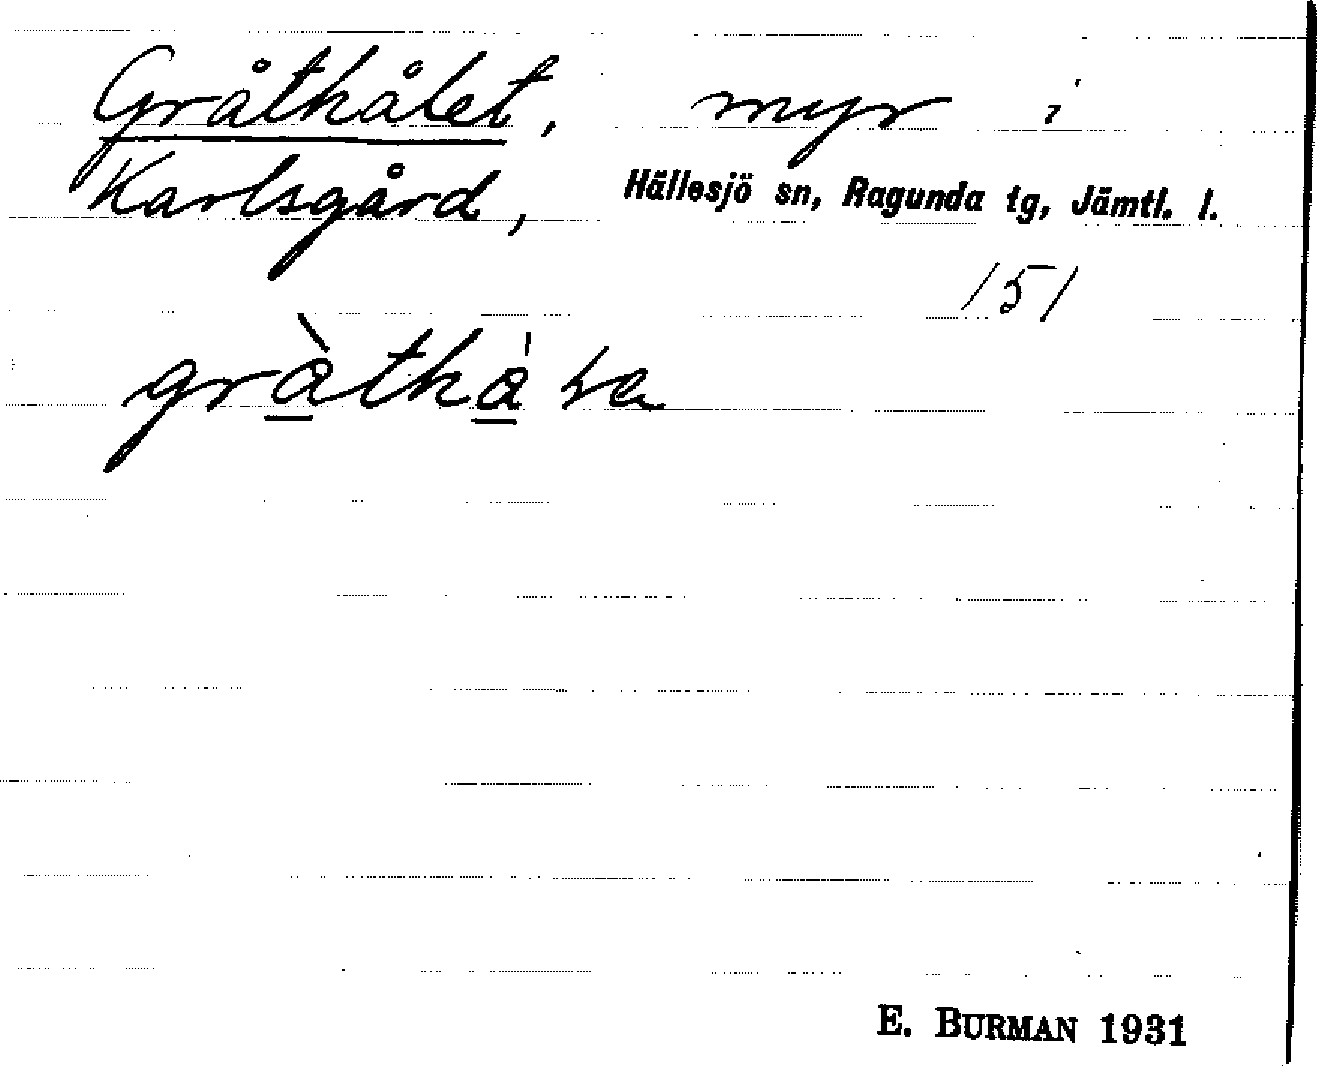 Gråthålet, myr i
Karlsgård, Hällesjö sn, Ragunda tg, Jämtl. l.
151
E. BURMAN 1931